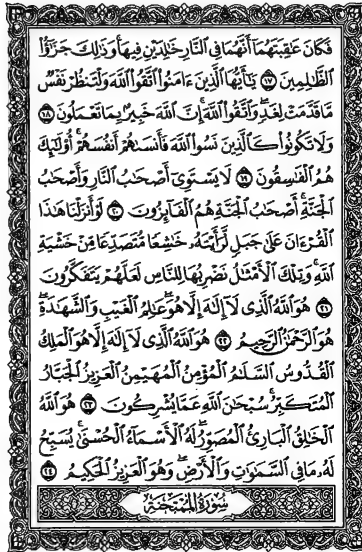 فَكَانَ عَٰقِبَتَهُمَآ أَنَّهُمَا فِي ٱلنَّارِ خَٰلِدَيْنِ فِيهَاۚ وَذَٰلِكَ جَزَٰٓؤُاْ
ٱلظَّٰلِمِينَ ١٧ يَٰٓأَيُّهَا ٱلَّذِينَ ءَامَنُواْ ٱتَّقُواْ ٱللَّهَ وَلْتَنظُرْ نَفْسٌ
مَّا قَدَّمَتْ لِغَدٍۖ وَٱتَّقُواْ ٱللَّهَۚ إِنَّ ٱللَّهَ خَبِيرٌۢ بِمَا تَعْمَلُونَ ١٨
وَلَا تَكُونُواْ كَٱلَّذِينَ نَسُواْ ٱللَّهَ فَأَنسَىٰهُمْ أَنفُسَهُمْۚ أُوْلَٰٓئِكَ
هُمُ ٱلْفَٰسِقُونَ ١٩ لَا يَسْتَوِيٓ أَصْحَٰبُ ٱلنَّارِ وَأَصْحَٰبُ
ٱلْجَنَّةِۚ أَصْحَٰبُ ٱلْجَنَّةِ هُمُ ٱلْفَآئِزُونَ ٢٠ لَوْ أَنزَلْنَا هَٰذَا
ٱلْقُرْءَانَ عَلَىٰ جَبَلٍ لَّرَأَيْتَهُۥ خَٰشِعًا مُّتَصَدِّعًا مِّنْ خَشْيَةِ
ٱللَّهِۚ وَتِلْكَ ٱلْأَمْثَٰلُ نَضْرِبُهَا لِلنَّاسِ لَعَلَّهُمْ يَتَفَكَّرُونَ
٢١ هُوَ ٱللَّهُ ٱلَّذِي لَآ إِلَٰهَ إِلَّا هُوَۖ عَٰلِمُ ٱلْغَيْبِ وَٱلشَّهَٰدَةِۖ
هُوَ ٱلرَّحْمَٰنُ ٱلرَّحِيمُ ٢٢ هُوَ ٱللَّهُ ٱلَّذِي لَآ إِلَٰهَ إِلَّا هُوَ ٱلْمَلِكُ
ٱلْقُدُّوسُ ٱلسَّلَٰمُ ٱلْمُؤْمِنُ ٱلْمُهَيْمِنُ ٱلْعَزِيزُ ٱلْجَبَّارُ
ٱلْمُتَكَبِّرُۚ سُبْحَٰنَ ٱللَّهِ عَمَّا يُشْرِكُونَ ٢٣ هُوَ ٱللَّهُ
ٱلْخَٰلِقُ ٱلْبَارِئُ ٱلْمُصَوِّرُۖ لَهُ ٱلْأَسْمَآءُ ٱلْحُسْنَىٰۚ يُسَبِّحُ
لَهُۥ مَا فِي ٱلسَّمَٰوَٰتِ وَٱلْأَرْضِۖ وَهُوَ ٱلْعَزِيزُ ٱلْحَكِيمُ ٢٤
سُورَةُ المُمْتَحَنَةِ